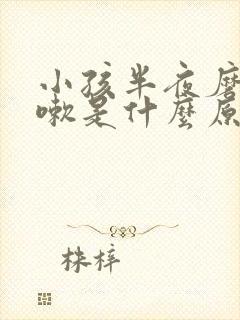 小孩半夜磨
嗽是什麼原
株梓